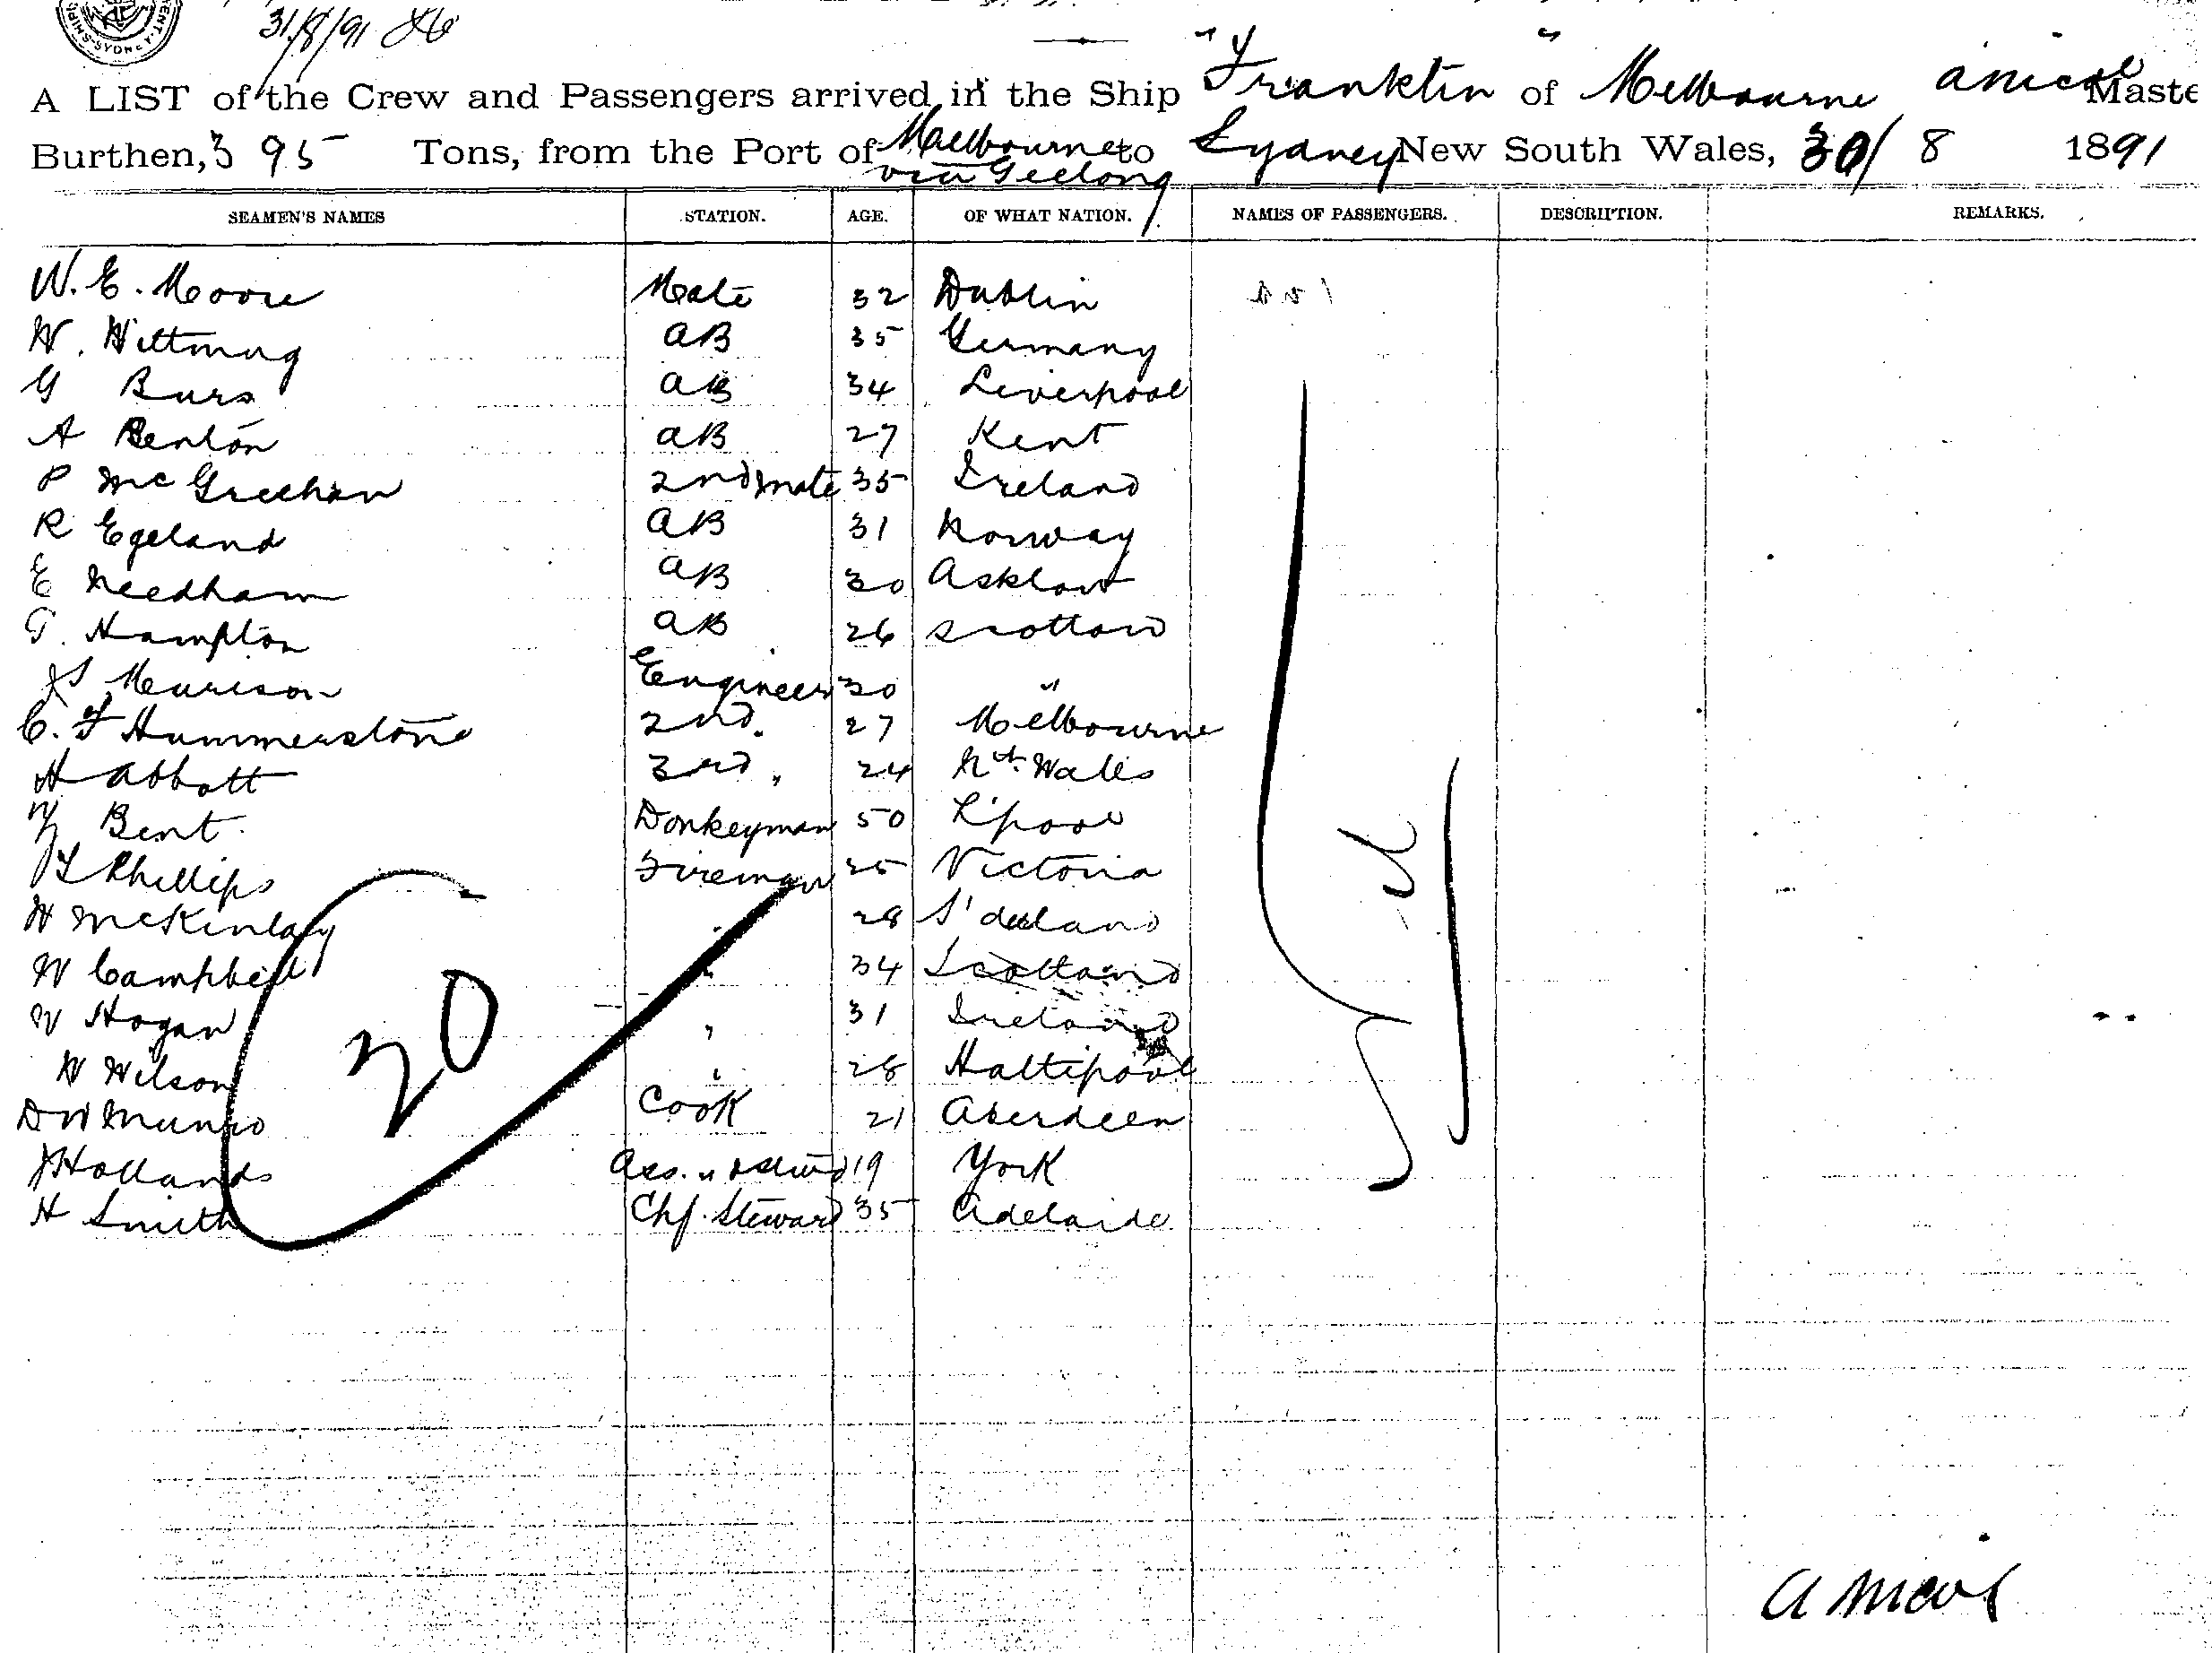 31/8/91
A LIST of the Crew and Passengers arrived in the Ship "Franklin" of Melbourne A Nicol Master
Burthen, 395 Tons, from the Port of Melbourne to Sydney New South Wales, 30/8 1891
via Geelong
SEAMEN'S NAMES STATION. AGE. OF WHAT NATION. NAMES OF PASSENGERS. DESCRIPTION. REMARKS.
W. E. Moore Mate 32 Dublin
W. Wittmug AB 35 Germany
G Burs AB 34 Liverpool
A Benton AB 27 Kent
P McGreehan 2nd mate 35 Ireland
R Egeland AB 31 Norway
E Needham AB 30 Asklow
T. Hampton AB 26 Scotland
Js Meurison Engineer 30 "
C. F Hummerstone 2nd. 27 Melbourne
H Abbott 3rd " 24 Nth Wales
Bent. Donkeyman 50 L'pool
Phillips Fireman 25 Victoria
H McKinlay " 28 S'deland
W Campbell " 34 Scotland
W Hogan " 31 Ireland
W Wilson " 28 Haltipool
D W Munro Cook 21 Aberdeen
J Hollands Ass. " 19 York
H Smith Chf. Steward 35 Adelaide
20
A Nicol